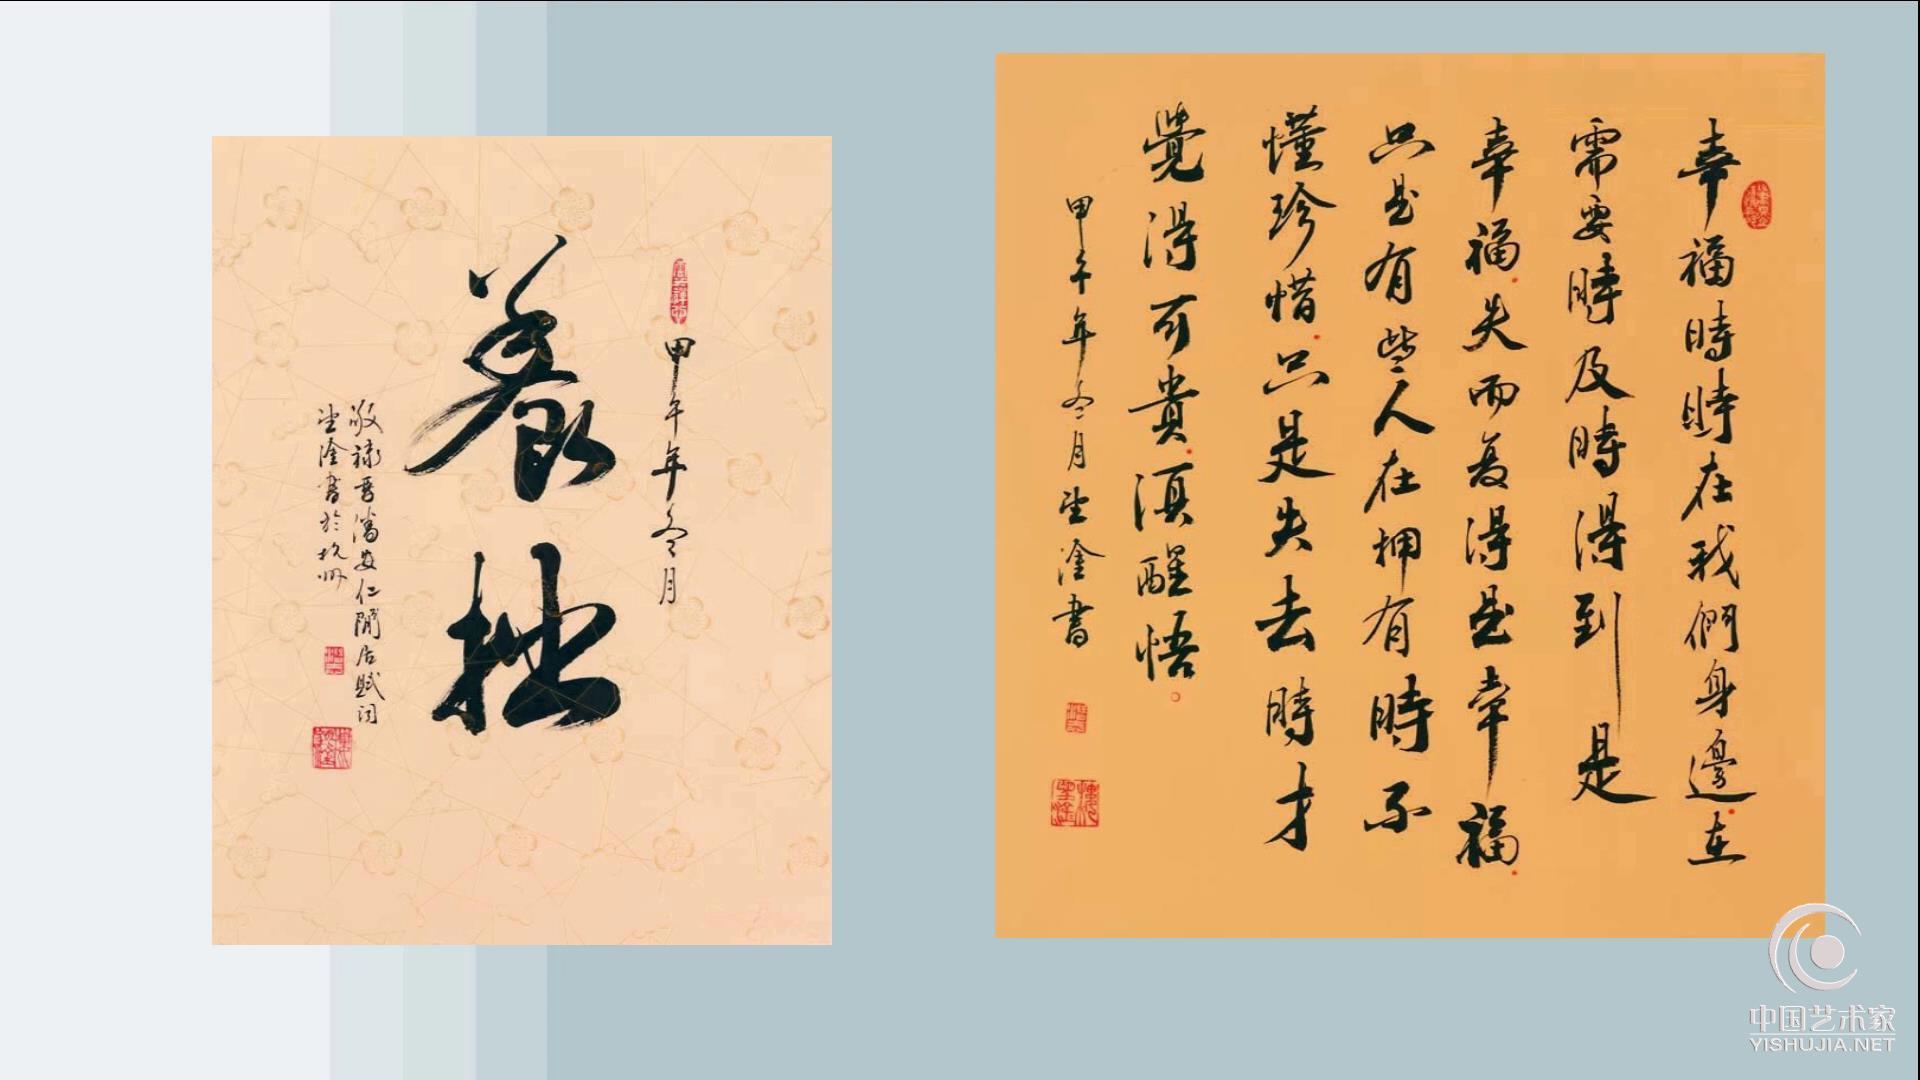 甲午年冬月
養拙
敬録晉潘安仁閒居賦词
望淦書於杭州
幸福時時在我們身邊在
需要時及時得到是
幸福失而复得是幸福
只是有些人在拥有時不
懂珍惜只是失去時才
覺得可貴須醒悟
甲午年冬月望淦書
中国艺术家
YISHUJIA.NET